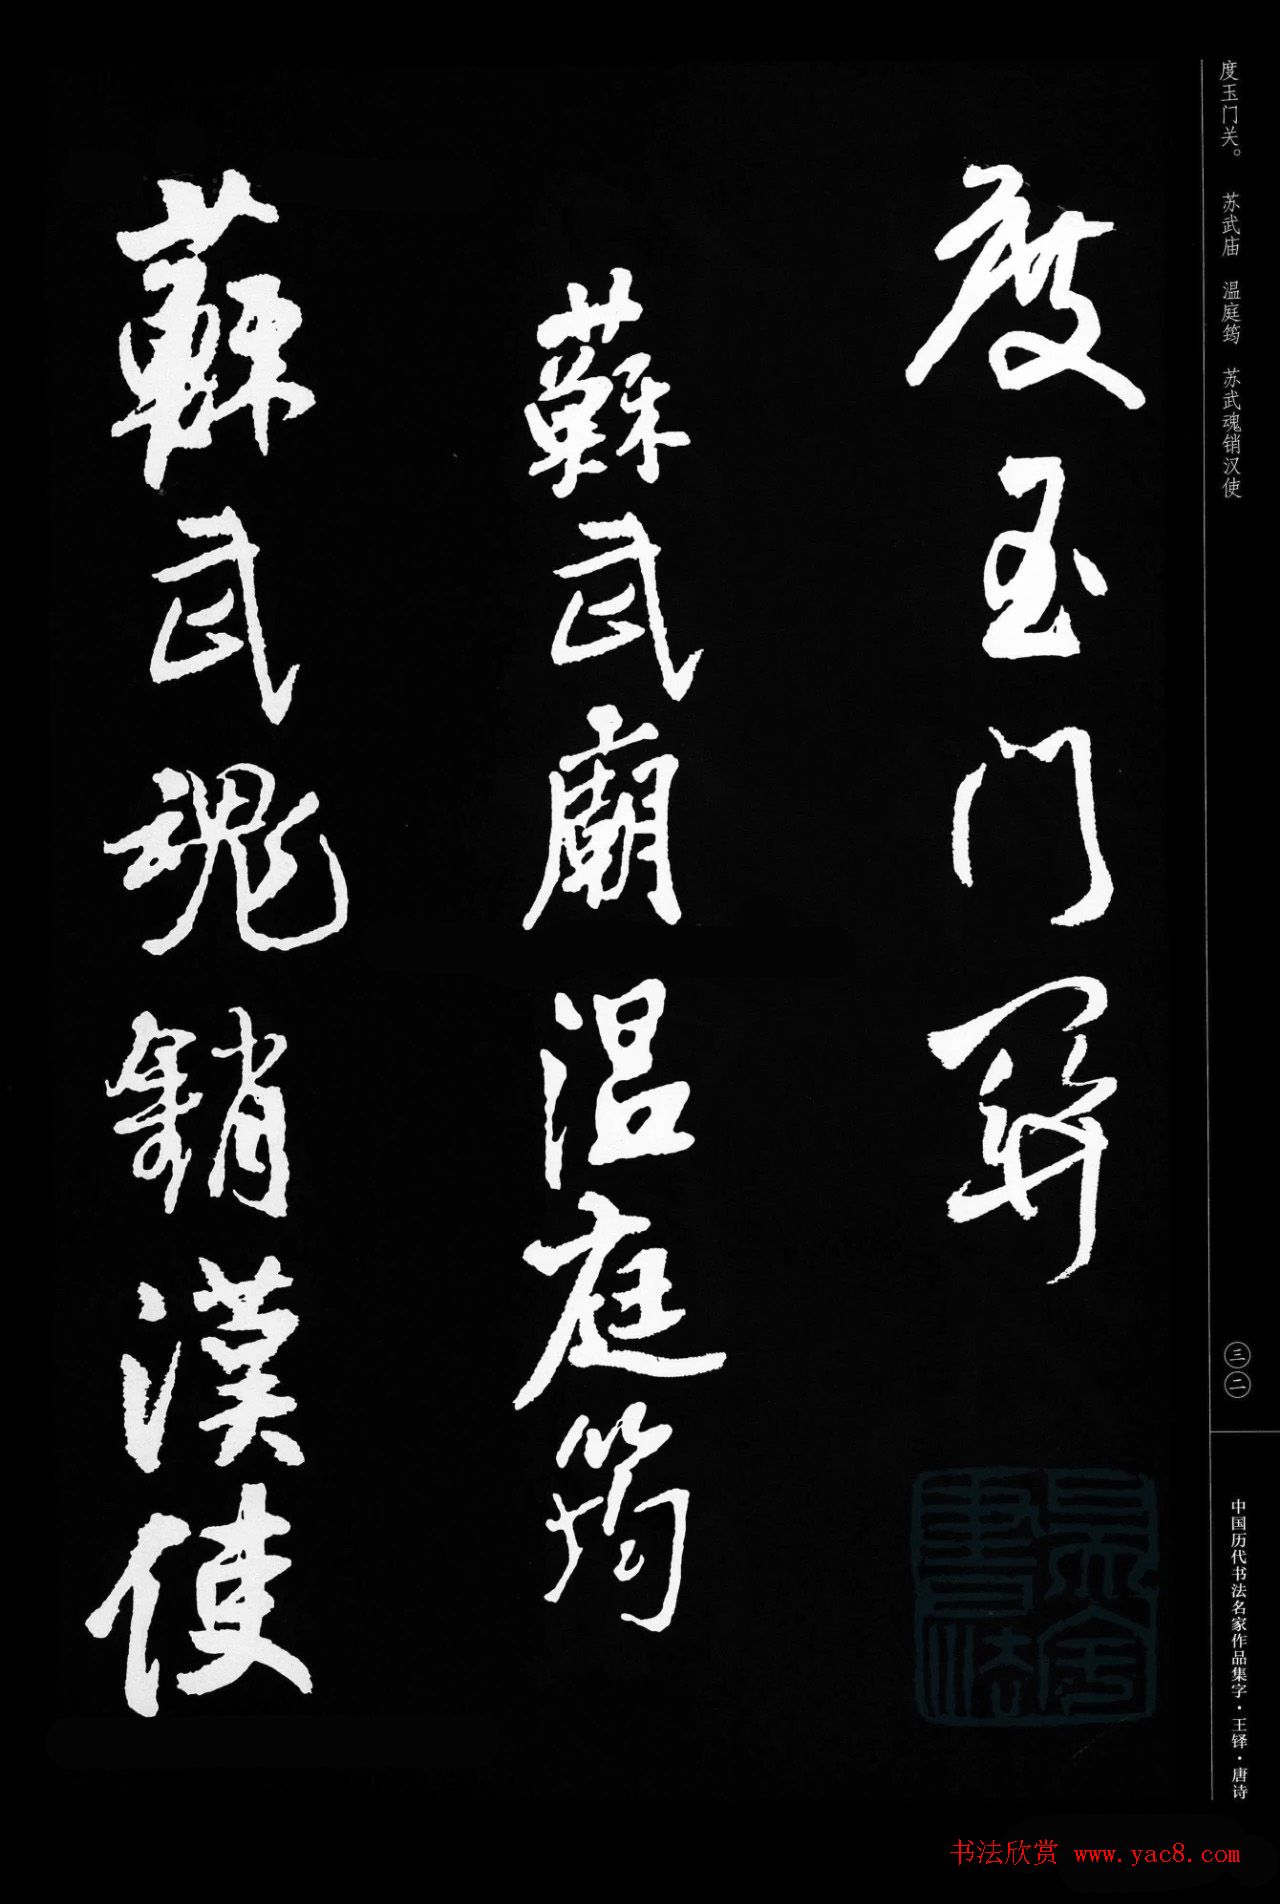 度玉门关。 苏武庙 温庭筠 苏武魂销汉使
度玉門關
蘇武廟温庭筠
蘇武魂銷漢使
三二
中国历代书法名家作品集字·王铎·唐诗
书法欣赏 www.yac8.com